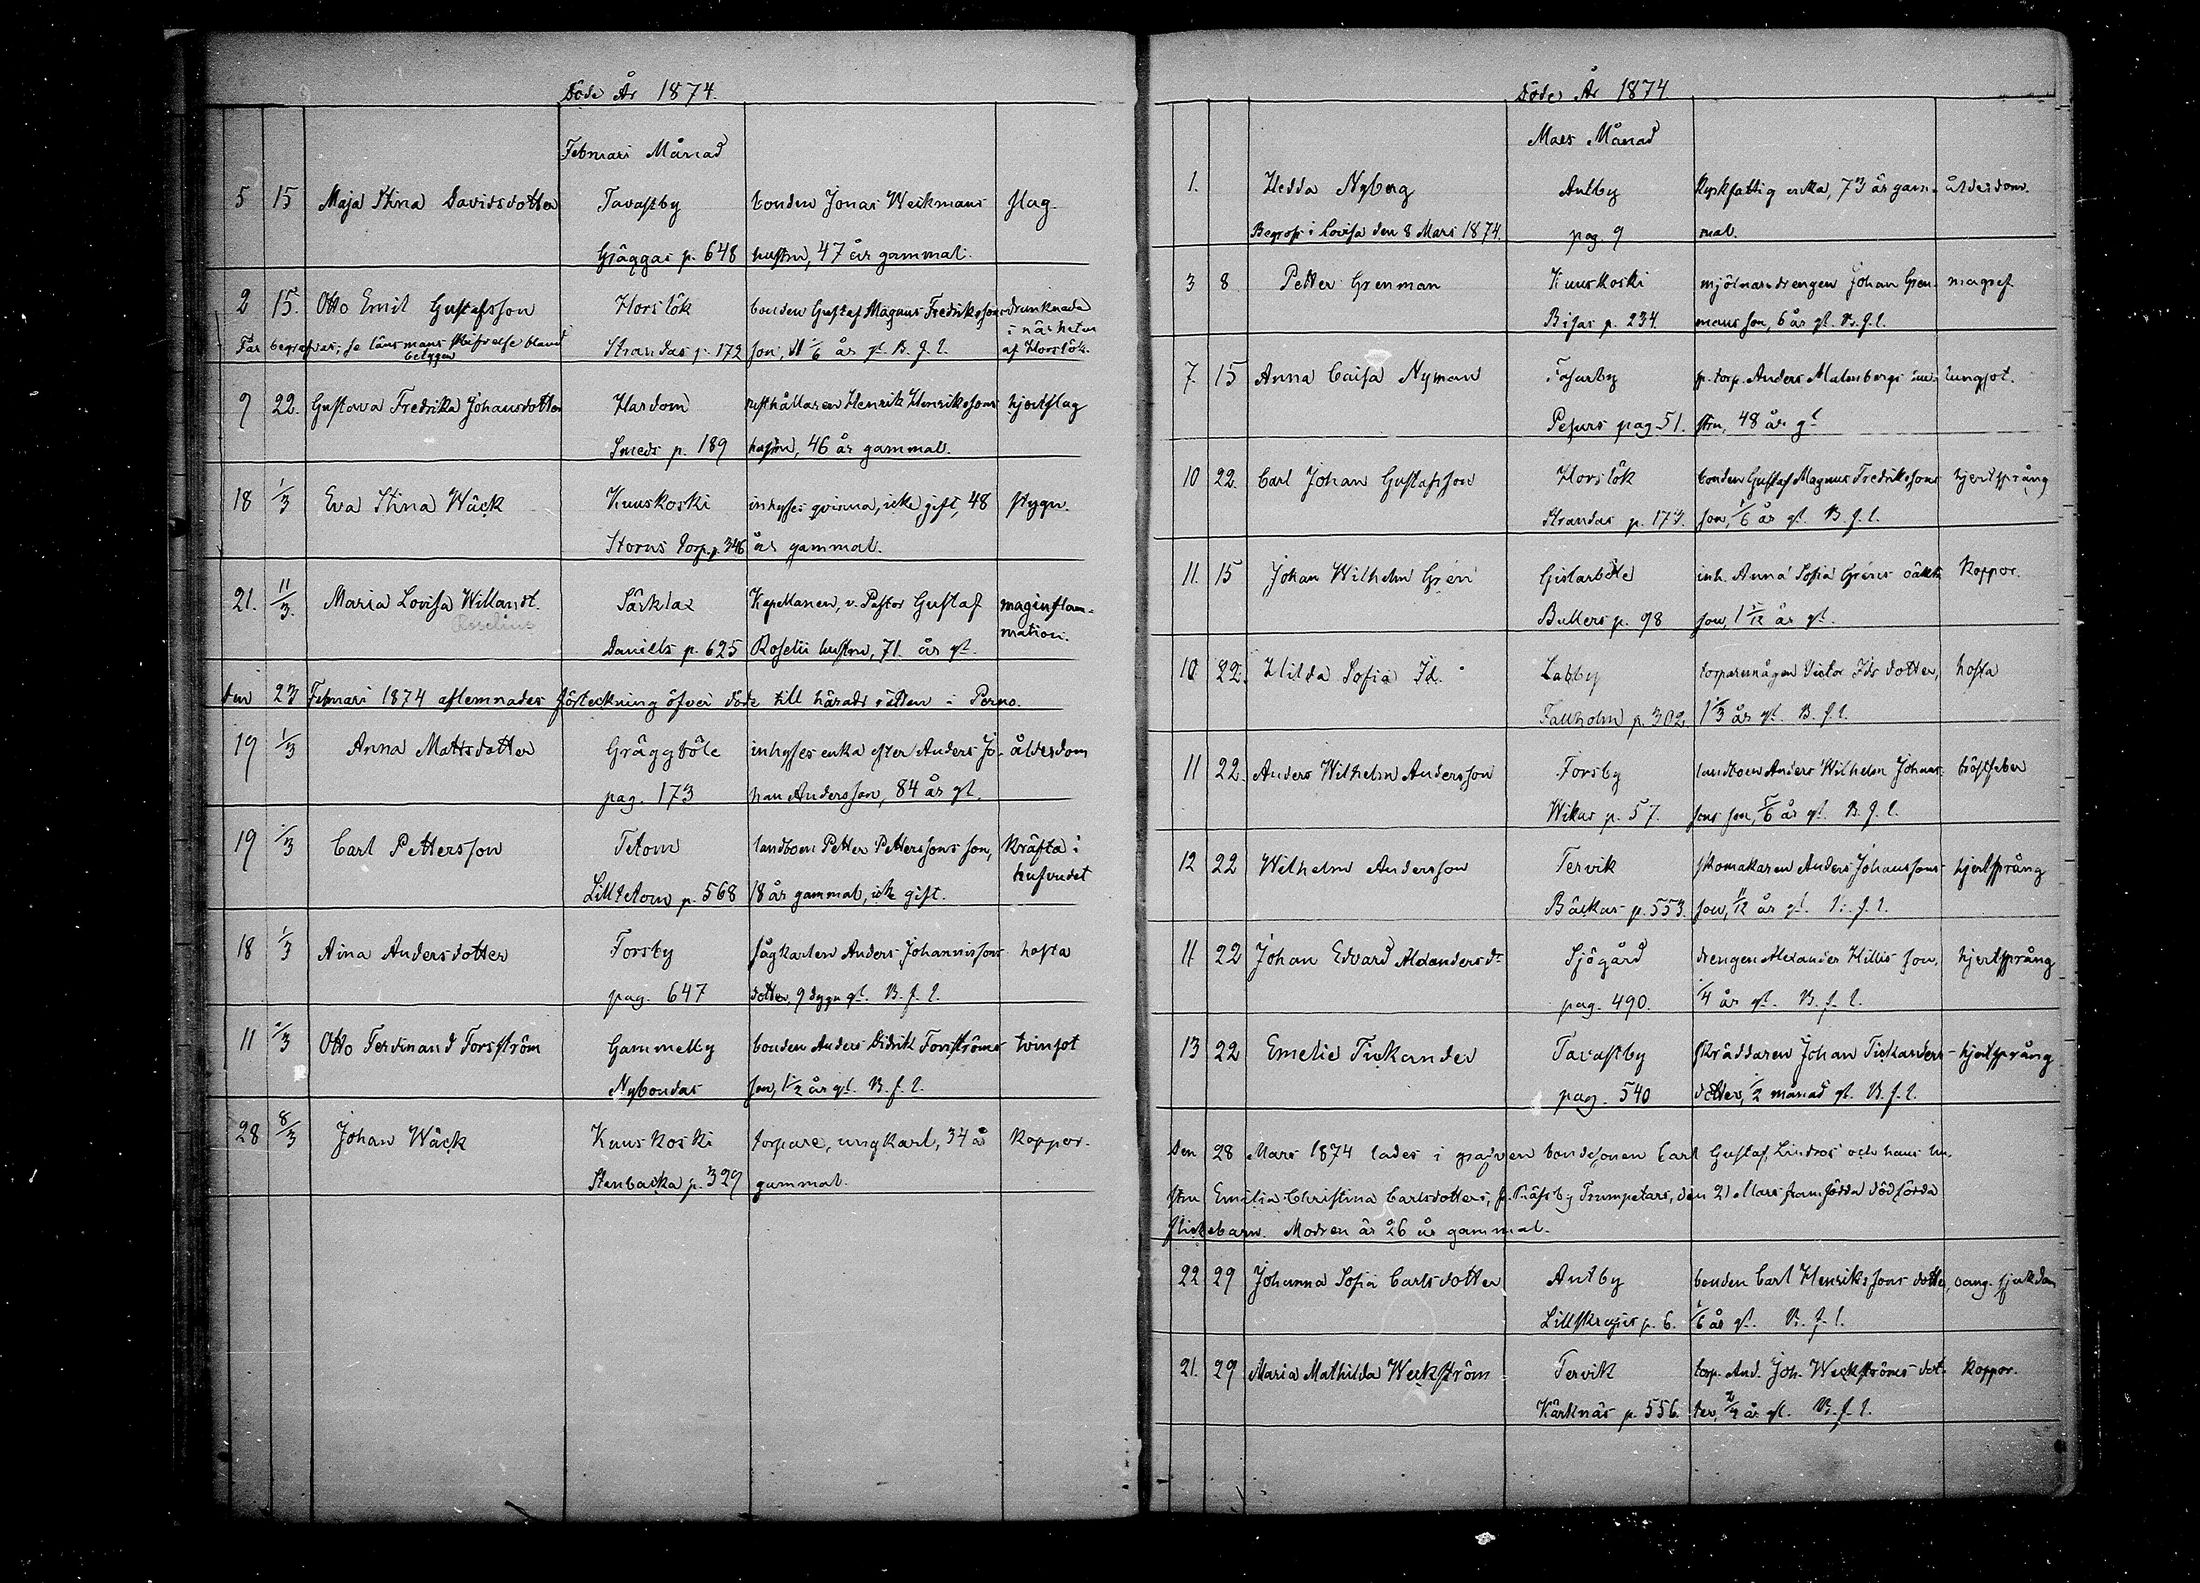 Döde År 1874.
Februari Månad
5 15 Maja Stina Davidsdotter Tavastby bonden Jonas Weckmans slag.
Gräggas p. 648 hustru, 47 år gammal.
2 15. Otto Emil Gustafsson Horslök bonden Gustaf Magnus Fredrikssons drunknade
i närheten
Får begrafvas, se länsmans skifvelse bland Strandas p. 173 son, 11 1/6 år gl. B. f. l. af Horslök.
betygen
9 22. Gustava Fredrika Johansdotter Hardom rusthållaren Henrik Henrikssons hjertslag
Smeds p. 189 hustru, 46 år gammal.
18 1/3 Eva Stina Wäck Kuuskoski inhyses qvinna, icke gift, 48 stygn.
Storns torp. p. 346 år gammal.
21. 11/3. Maria Lovisa Willandt. Särklax Kapellanen, v. Pastor Gustaf maginflam-
Roselius mation.
Daniels p. 625 Roselii hustru, 71. år gl.
den 23 Februari 1874 aflemnades förteckning öfver döde till härads rätten i Perno.
19 1/3 Anna Mattsdotter Gräggböle inhyses enka efter Anders Jo- ålderdom
pag. 173 han Andersson, 84 år gl.
19 1/3 Carl Pettersson Tetom landboen Petter Petterssons son, kräfta i
hufvudet
Lilltetom p. 568 18 år gammal, icke gift.
18 1/3 Aina Andersdotter Forsby sågkarlen Anders Johannissons hosta
pag. 647 dotter, 9 dygn gl. B. f. l.
11 2/3 Otto Ferdinand Forsström Gammelby bonden Anders Didrik Forsströms tvinsot
Nybondas son, 1 1/2 år gl. B. f. l.
28 8/3 Johan Wäck Kuuskoski torpare, ungkarl, 34 år koppor.
Stenbacka p. 329 gammal.
Döde År 1874
Mars Månad
1. Hedda Nyberg Antby kyrkfattig enka, 73 år gam- ålderdom.
Begrofs i Lovisa den 8 Mars 1874. pag. 9 mal.
3 8 Petter Grenman Kuuskoski mjölnaredrengen Johan Gren- magref
Bisas p. 234. mans son, 6 år gl. B. f. l.
7. 15 Anna Caisa Nyman Fasarby p. torp. Anders Malmbergs hu- lungsot.
Pesurs pag. 51. stru, 48 år gl
10 22. Carl Johan Gustafsson Horslök bonden Gustaf Magnus Fredrikssons hjertsprång
Strandas p. 173. son, 1/6 år gl. B. f. l.
11. 15 Johan Wilhelm Grén Gislarböle inh. Anna Sofia Gréns oäkta koppor.
Bullers p. 98 son, 1 1/12 år gl.
10 22. Hilda Sofia Id. Labby torparemågen Victor Ids dotter, hosta
Fallholm p. 302 1 1/3 år gl. B. f. l.
11 22. Anders Wilhelm Andersson Forsby landboen Anders Wilhelm Johans- bröstfeber
Wikas p. 57. sons son, 5/6 år gl. B. f. l.
12 22 Wilhelm Andersson Tervik skomakaren Anders Johanssons hjertsprång
Bäckas p. 553. son, 11/12 år gl. B. f. l.
11 22 Johan Edvard Alexandersd. Sjögård drengen Alexander Hillis son, hjertsprång
pag. 490. 1/4 år gl. B. f. l.
13 22 Emelie Tickander Tavastby skräddaren Johan Tickanders hjertsprång
pag. 540 dotter, 1/2 månad gl. B. f. l.
Den 28 Mars 1874 lades i grafven bondesonen Carl Gustaf Lindros och hans hu-
stru Emilia Christina Carlsdotters, fr. Näsby Trumpetars, den 21 Mars framfödda dödfödda
flickebarn. Modren är 26 år gammal.
22 29 Johanna Sofia Carlsdotter Antby bonden Carl Henrikssons dotter, oang. sjukdom
Lillskrajus p. 6. 1/6 år gl. B. f. l.
21. 29 Maria Mathilda Weckström Tervik torp. And. Joh. Weckströms dot- koppor.
Kärknäs p. 556. ter, 3/4 år gl. B. f. l.